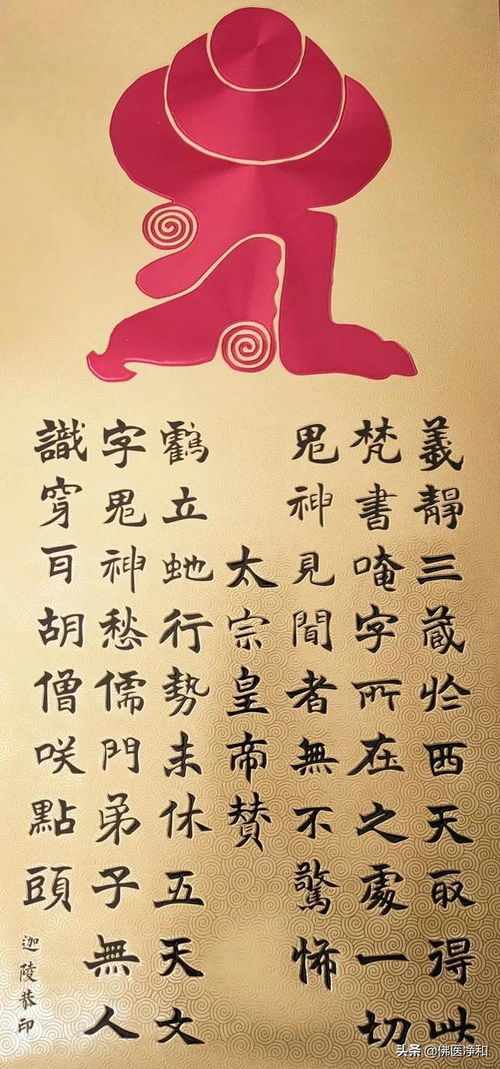 義靜三蔵扵西天取得此
梵書唵字所在之處一切
鬼神見間者無不驚怖
太宗皇帝賛
鸖立虵行勢未休五天文
字鬼神愁儒門弟子無人
識穿耳胡僧咲點頭
迦陵恭印
头条 @佛医净和